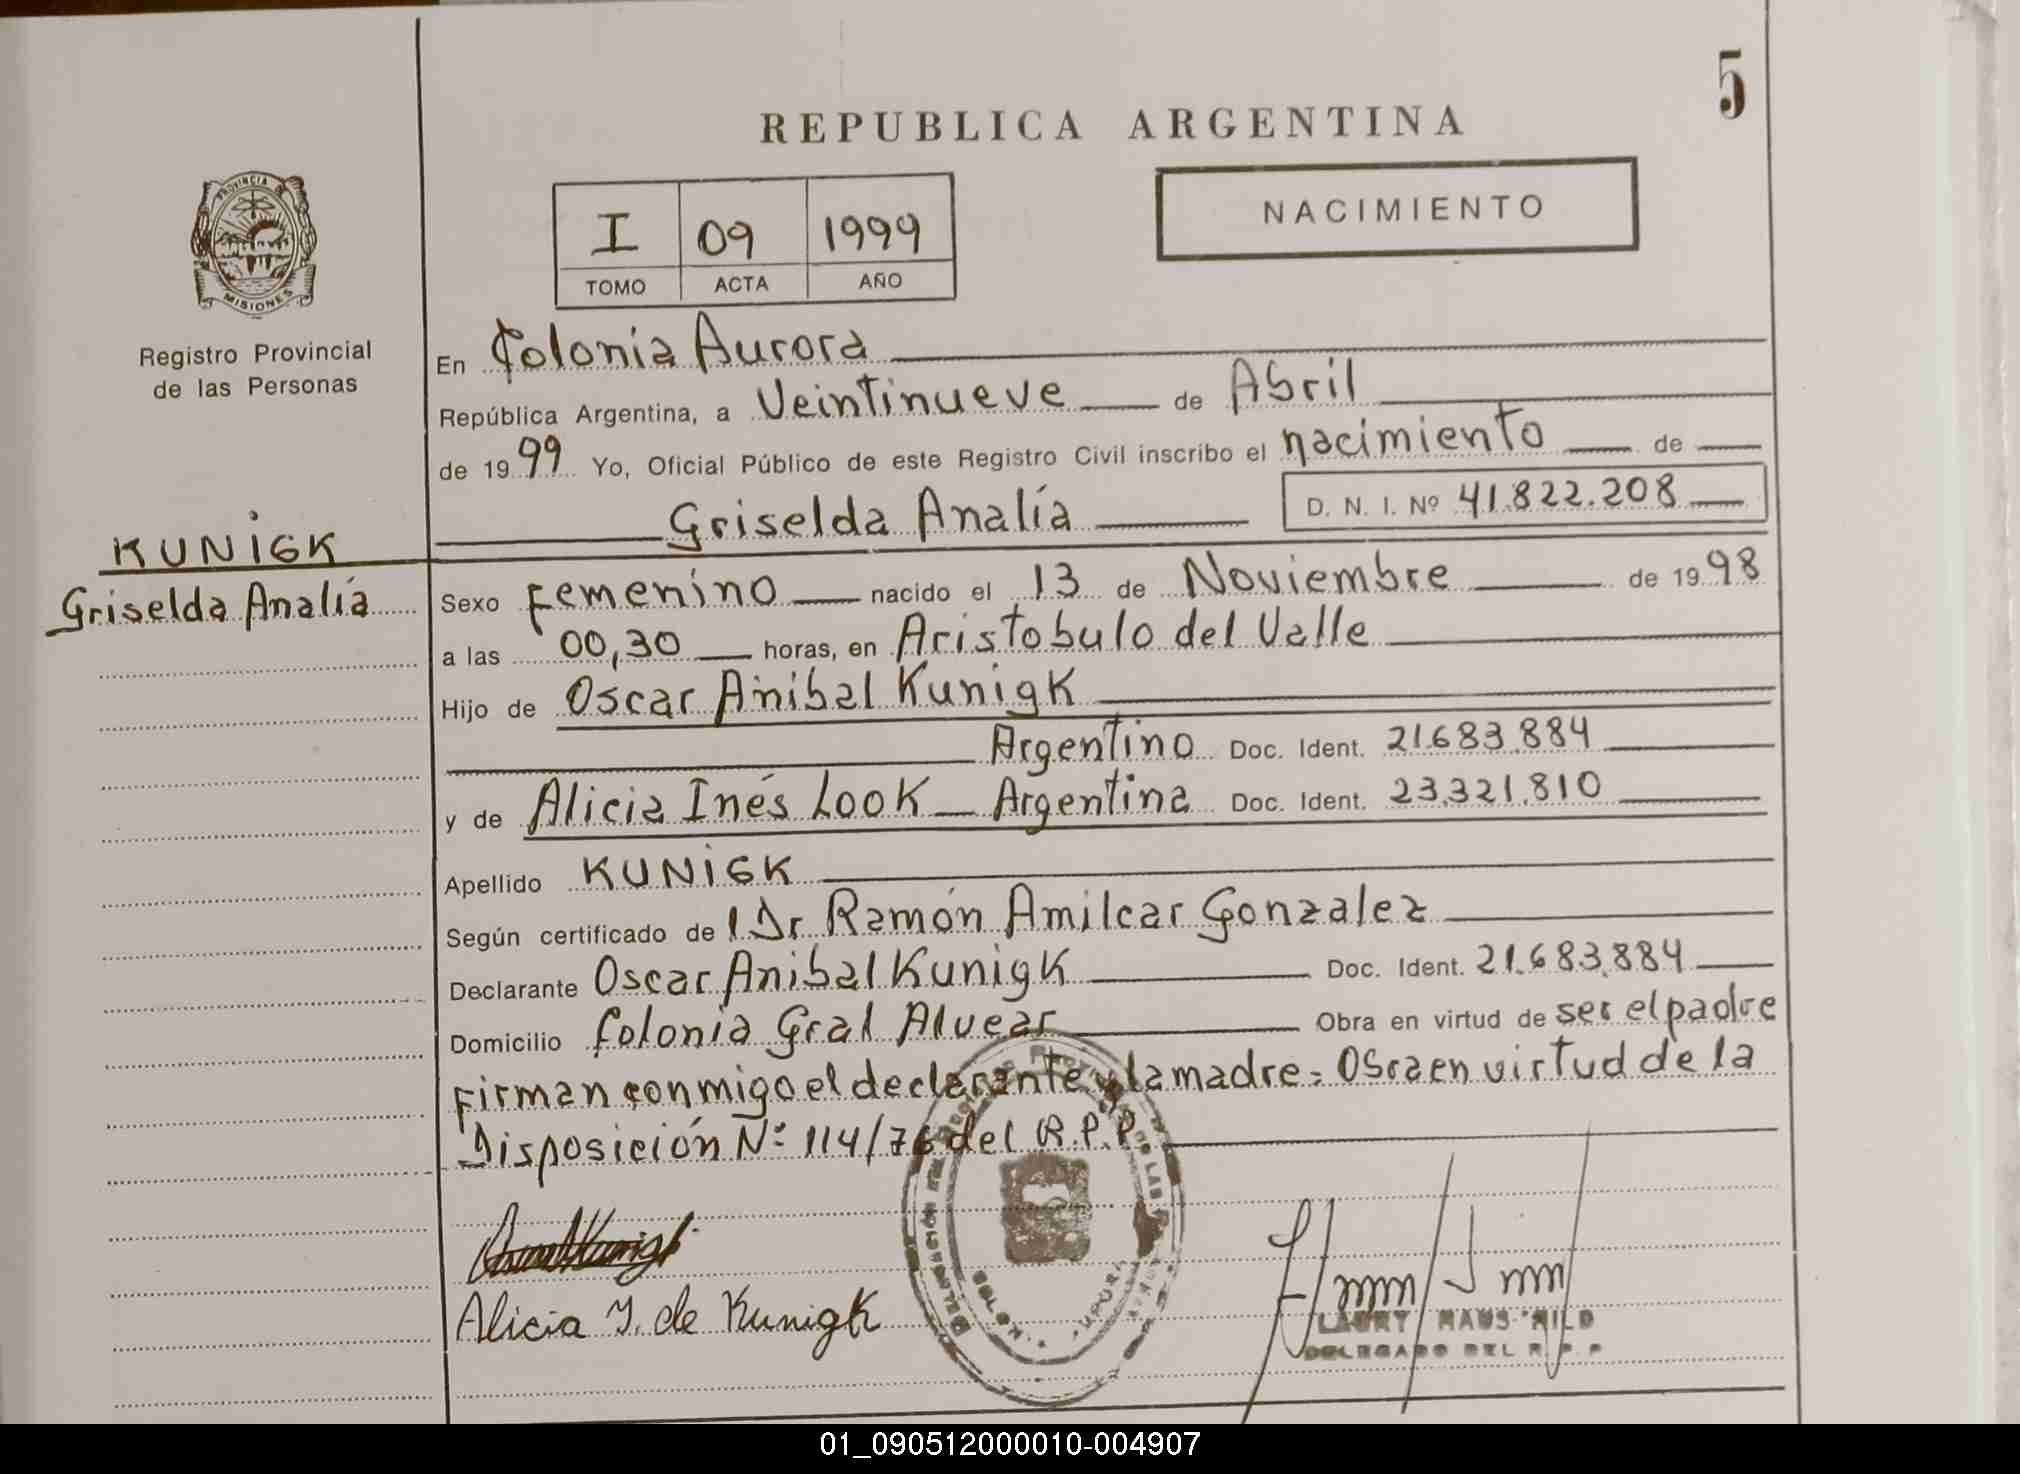 5
REPUBLICA ARGENTINA
I 09 1999
TOMO ACTA AÑO
NACIMIENTO
PROVINCIA DE
MISIONES
Registro Provincial
de las Personas
KUNIGK
Griselda Analía
En Colonia Aurora
República Argentina, a Veintinueve de Abril
de 1999 Yo, Oficial Público de este Registro Civil inscribo el nacimiento de
Griselda Analía D. N. I. Nº 41.822.208
Sexo Femenino nacido el 13 de Noviembre de 1998
a las 00,30 horas, en Aristobulo del Valle
Hijo de Oscar Anibal Kunigk
Argentino Doc. Ident. 21.683.884
y de Alicia Inés Look Argentina Doc. Ident. 23.321.810
Apellido KUNIGK
Según certificado de l Dr Ramón Amilcar Gonzalez
Declarante Oscar Anibal Kunigk Doc. Ident. 21.683.884
Domicilio Colonia Gral Alvear Obra en virtud de ser el padre
Firman conmigo el declarante y la madre = Obra en virtud de la
Disposición Nº 114/76 del R.P.P.
Alicia I. de Kunigk
DELEGADO DEL R. P. P
01_090512000010-004907